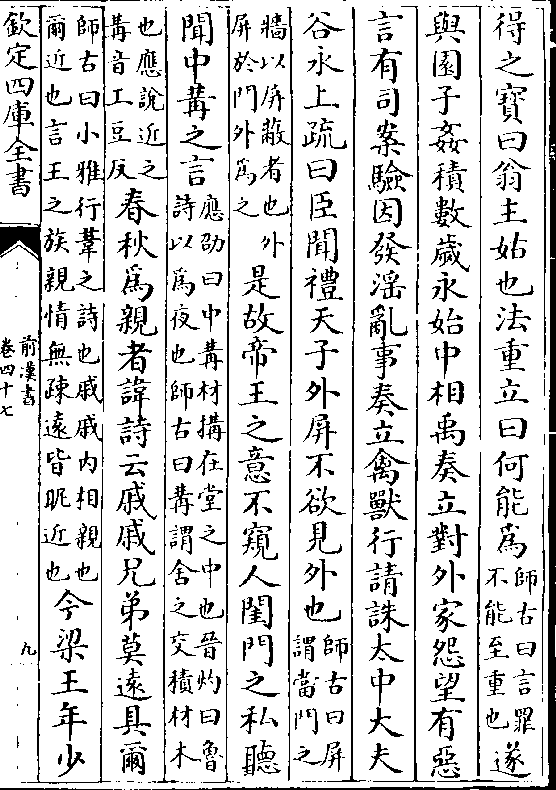 得之寶曰翁主姑也法重立曰何能為師古曰言罪不能至重也遂
與園子姦積數歲永始中相禹奏立對外家怨望有惡
言有司案驗因發淫亂事奏立禽獸行請誅太中大夫
谷永上疏曰臣聞禮天子外屏不欲見外也師古曰屏謂當門之
牆以屏蔽者也外屏於門外為之是故帝王之意不窺人閨門之私聽
聞中冓之言應劭曰中冓材搆在堂之中也晉灼曰魯詩以為夜也師古曰冓謂舍之交積材木
也應說近之冓音工豆反春秋為親者諱詩云戚戚兄弟莫遠具爾
師古曰小雅行葦之詩也戚戚內相親也爾近也言王之族親情無疎遠皆昵近也今梁王年少
欽定四庫全書
前漢書
卷四十七
九